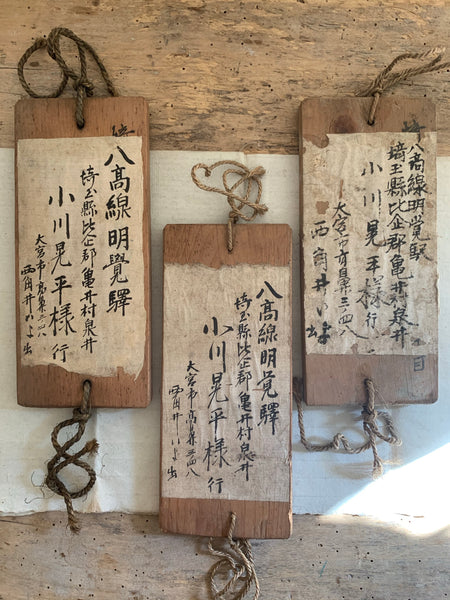 八高線明覺驛
埼玉縣比企郡亀井村泉井
小川晃平様 行
大宮市高鼻三ノ四八
西角井のよ 出
八高線明覚驛
埼玉縣比企郡亀井村泉井
小川晃平様 行
大宮市高鼻三ノ四八
西角井のよ 出
八高線明覚駅
埼玉縣比企郡亀井村泉井
小川晃平様 行
大宮市高鼻三ノ四八
西角井のよ 出